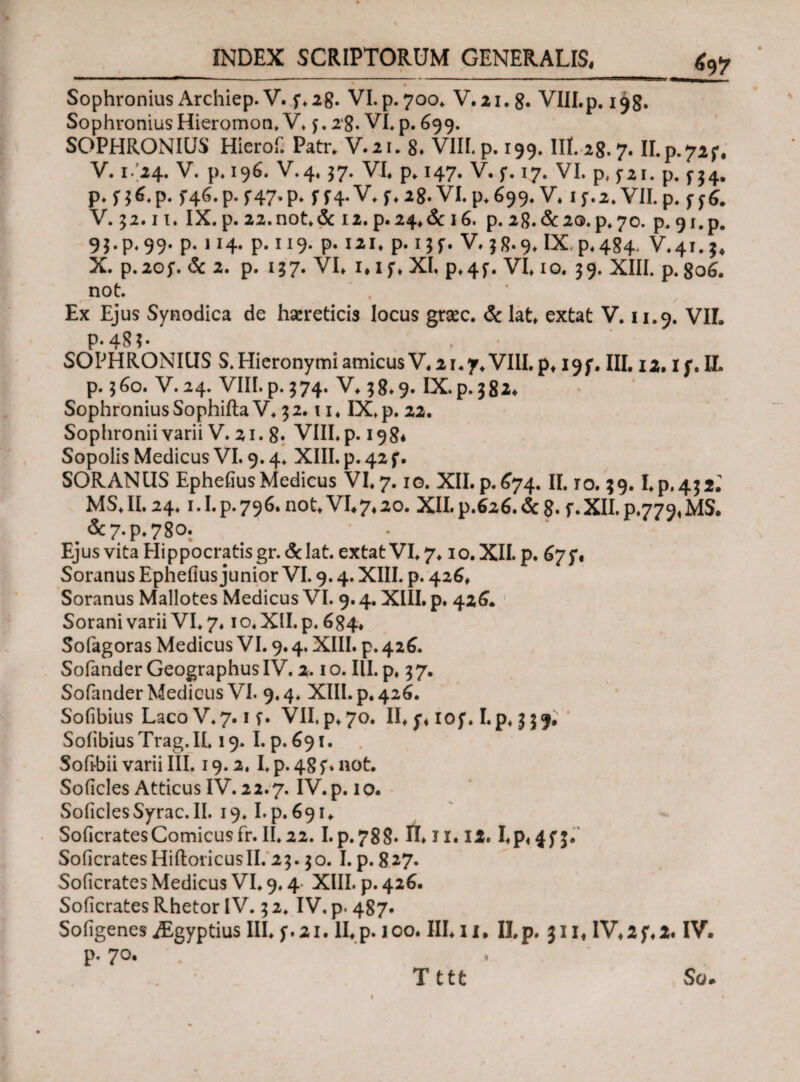 INDEX SCRIPTORUM GENERALIS. 697
Sophronius Archiep. V. 5. 28. VI. p. 700. V. 21. 8. VIII. p. 198.
Sophronius Hieromon. V. 5. 28. VI. p. 699.
SOPHRONIUS Hierof. Patr. V. 21. 8. VIII. p. 199. III. 28. 7. II. p. 725.
V. 1. 24. V. p. 196. V. 4. 37. VI. p. 147. V. 5. 17. VI. p. 521. p. 534.
p. 536. p. 546. p. 547. p. 554. V. 5. 28. VI. p. 699. V. 15. 2. VII. p. 556.
V. 32. 11. IX. p. 22. not. & 12. p. 24. & 16. p. 28. & 20. p. 70. p. 91. p.
93. p. 99. p. 114. p. 119. p. 121. p. 135. V. 38. 9. IX. p. 484. V. 41. 3.
X. p. 205. & 2. p. 137. VI. 1. 15. XI. p. 45. VI. 10. 39. XIII. p. 806.
not.
Ex Ejus Synodica de hæreticis locus græc. & lat. extat V. 11. 9. VII.
p. 483.
SOPHRONIUS S. Hieronymi amicus V. 21. 7. VIII. p. 195. III. 12. 15. II.
p. 360. V. 24. VIII. p. 374. V. 38. 9. IX. p. 382.
Sophronius Sophista V. 32. 11. IX. p. 22.
Sophronii varii V. 21. 8. VIII. p. 198.
Sopolis Medicus VI. 9. 4. XIII. p. 425.
SORANUS Ephesius Medicus VI. 7. 10. XII. p. 674. II. 10. 39. I. p. 432.
MS. II. 24. 1. I. p. 796. not. VI. 7. 20. XII. p. 626. & 8. 5. XII. p. 779. MS.
& 7. p. 780.
Ejus vita Hippocratis gr. & lat. extat VI. 7. 10. XII. p. 675.
Soranus Ephesius junior VI. 9. 4. XIII. p. 426.
Soranus Mallotes Medicus VI. 9. 4. XIII. p. 426.
Sorani varii VI. 7. 10. XII. p. 684.
Sosagoras Medicus VI. 9. 4. XIII. p. 426.
Sosander Geographus IV. 2. 10. III. p. 37.
Sosander Medicus VI. 9. 4. XIII. p. 426.
Sosibius Laco V. 7. 15. VII. p. 70. II. 5. 105. I. p. 339.
Sosibius Trag. II. 19. I. p. 691.
Sosibii varii III. 19. 2. I. p. 485. not.
Sosicles Atticus IV. 22. 7. IV. p. 10.
Sosicles Syrac. II. 19. I. p. 691.
Sosicrates Comicus fr. II. 22. I. p. 788. II. 11. 12. I. p. 453.
Sosicrates Historicus II. 23. 30. I. p. 827.
Sosicrates Medicus VI. 9. 4. XIII. p. 426.
Sosicrates Rhetor IV. 32. IV. p. 487.
Sosigenes Ægyptius III. 5. 21. II. p. 100. III. 11. II. p. 311. IV. 25. 2. IV.
p. 70.
Tttt So-